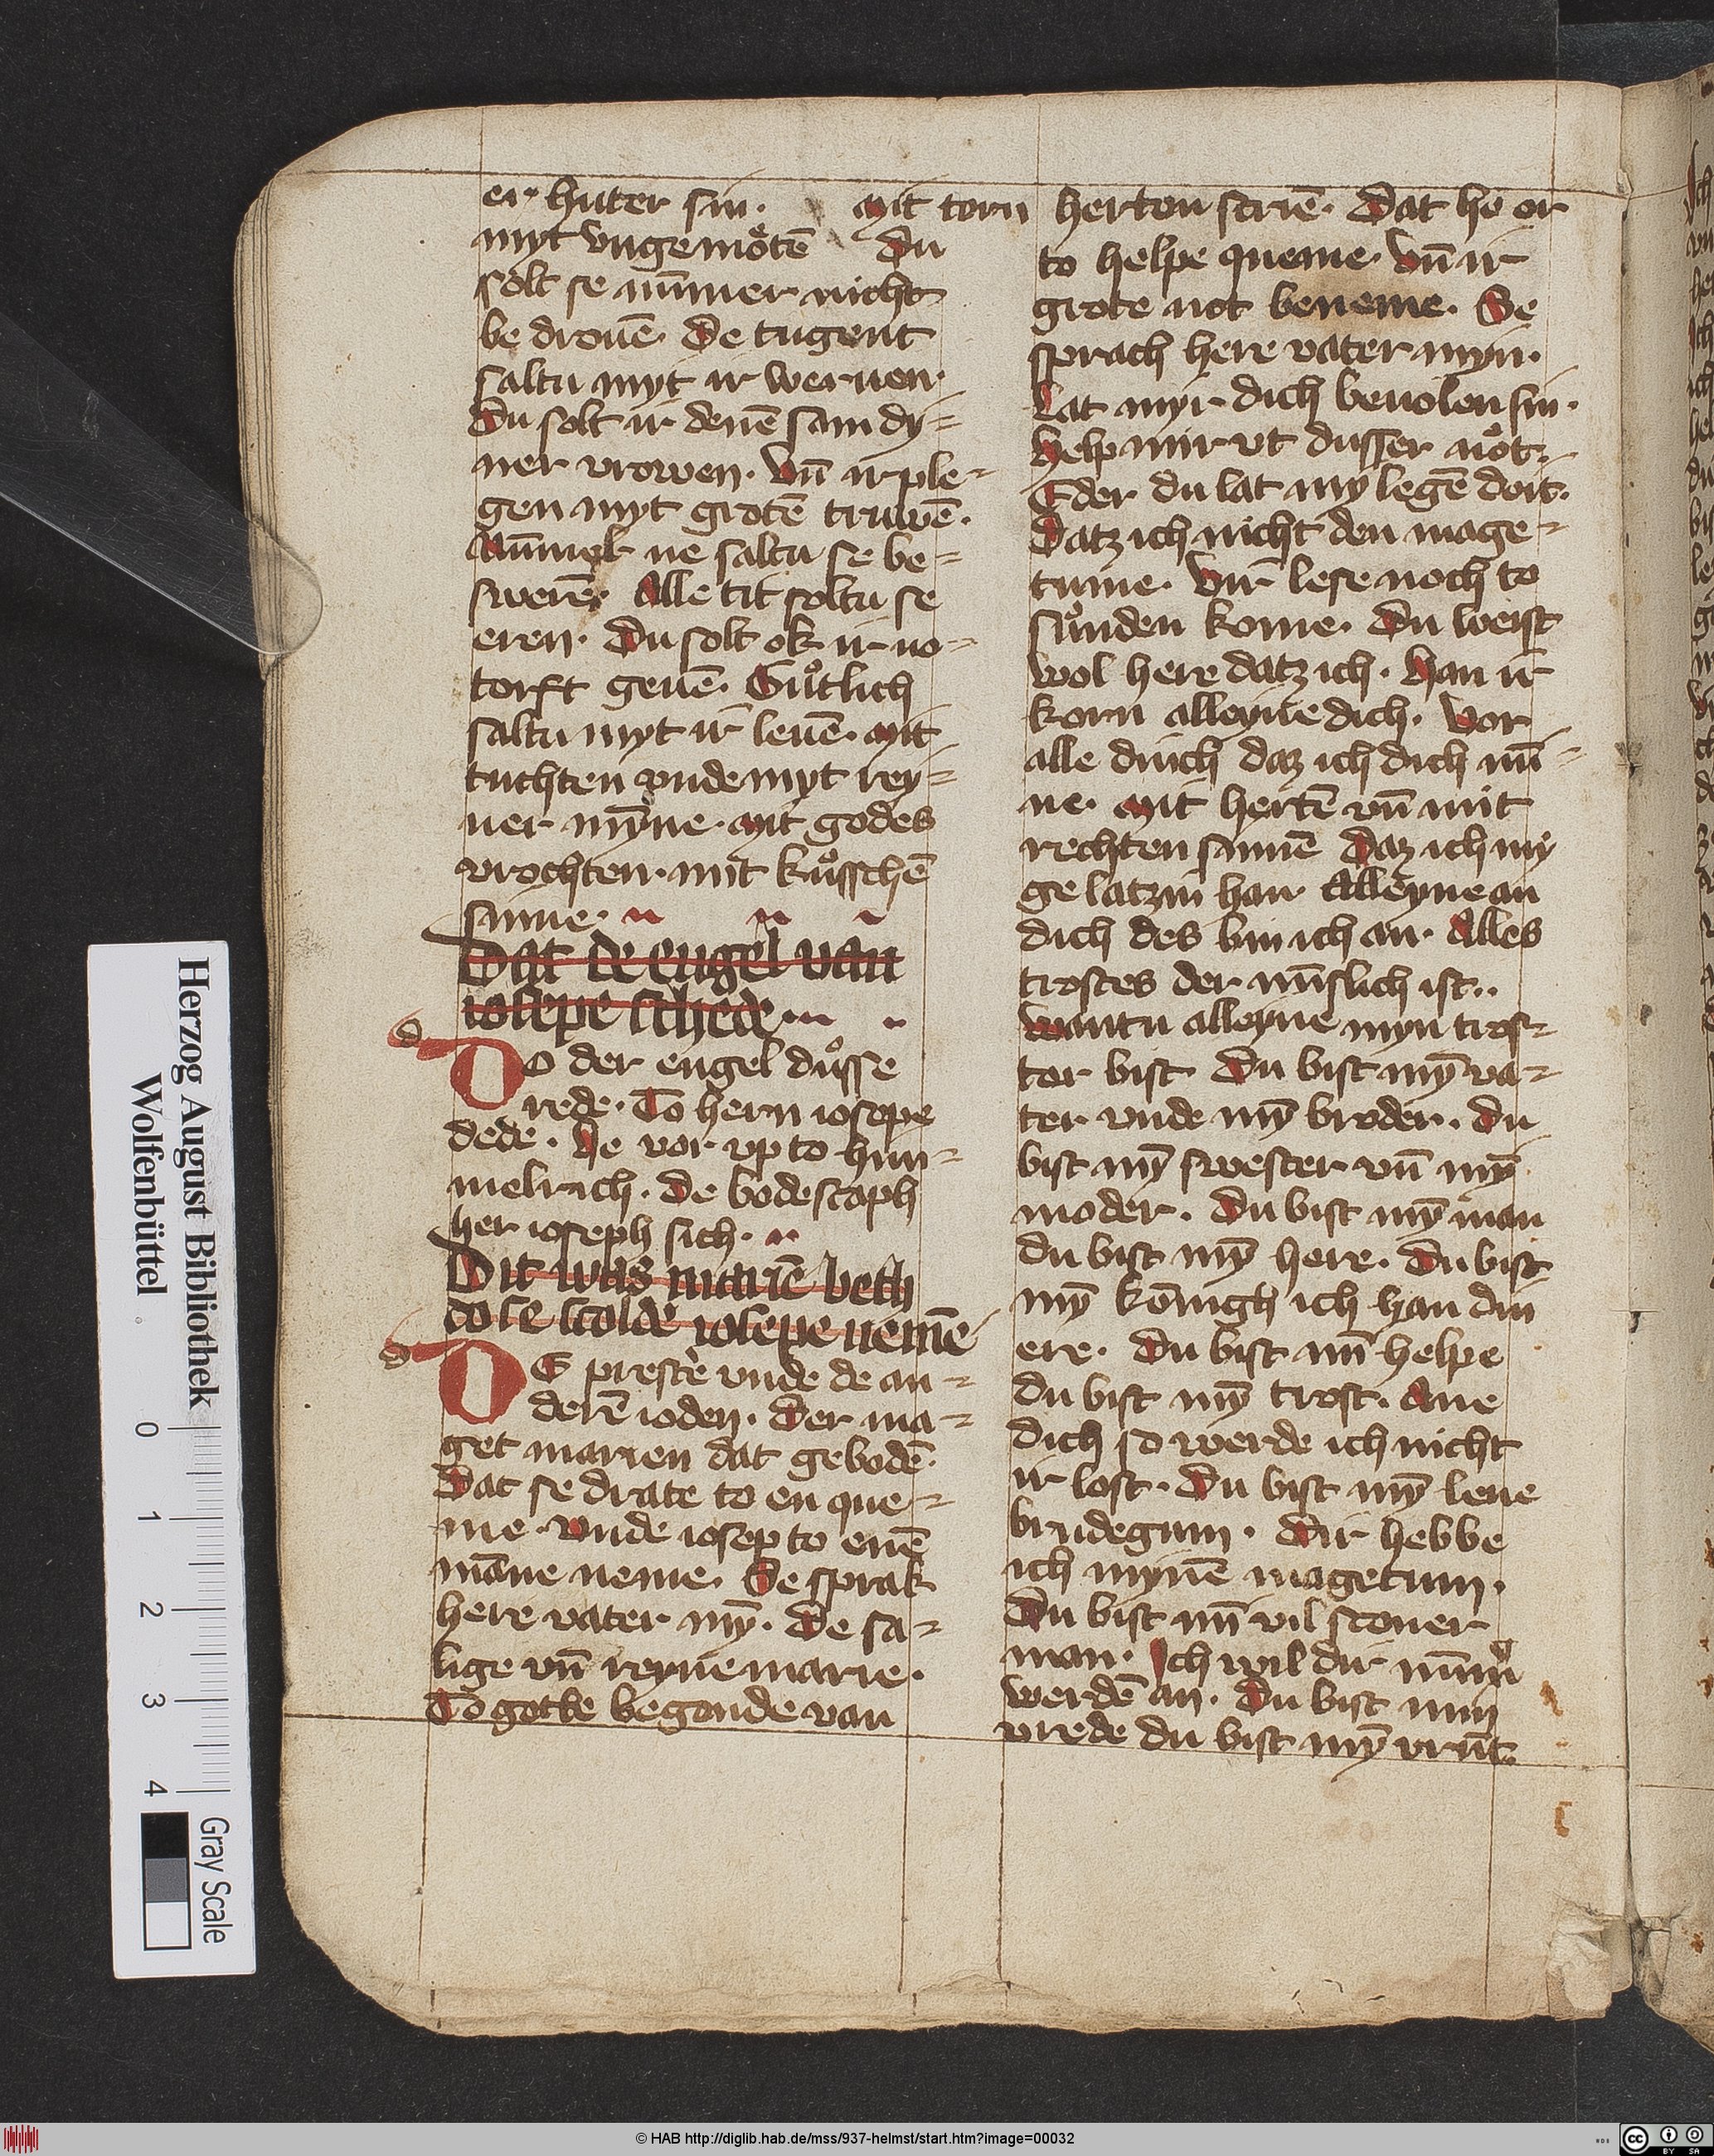 er huter sin. Mit torn
myt vngemoͤtē Du
solt se nūmer nicht
be drouē. De tugent
saltu myt ir weruen.
Du solt ir denē sam dy-
ner vrowen. Vn̄ ir ple-
gen myt grotē truwē.
Nūmer ne saltu se be-
swerē. Alle tit soltu se
eren. Du solt ok ir no-
torft geuē. Guͦtlich
saltu myt ir leuē. Mit
tuchten vnde myt rey-
ner mȳne. Mit godes
vrochten. mit kuͦsschē
sinne.
Dat de engel van
iosepe schede
d
Do der engel duͦsse
rede. To hern iosepe
dede. He vor vp to him-
melrich. De bodescaph
her ioseph sich.
Dit was mariē beth
do se scolde iosepe nemē
d
DE prestere vnde de an-
derē ioden. Der ma-
get marien dat gebodē.
Dat se drate to en que-
me. Vnde iosep to enē
māne neme. Se sprak
here vater mȳ. De sa-
lige vn̄ reyne marie.
To gotte begonde van
herten scriē. Dat he er
to helpe queme. Vn̄ ir
grote not beneme. Se
sprach here vater myn.
Lat myr dich beuolen sin.
Help mir vt dusser noͤt.
Eder du lat my legē doit.
Datz ich nicht den mage-
tume. Vir lese noch to
suͦnden kome. Du weist
wol here datz ich. Han ir
korn alleyne dich. Vor
alle dinch daz ich dich mī-
ne. Mit hertē vn̄ mit
rechten sinnē Daz ich my
gelatzin han Alleyne an
dich des bin ich an. Alles
trostes der mīslich ist..
Wantu alleyne myn tros-
ter bist. Du bist mȳ va-
ter vnde mȳ broder. Du
bist mȳ swester vn̄ mȳ
moder. Du bist mȳ man
du bist mȳ here. Du bist
mȳ kōnigh ich han din
ere. Du bist mī helpe
du bist mȳ trost. Ane
dich so werde ich nicht
ir lost. Du bist mȳ leue
brudegum. Dir hebbe
ich mynē magetum.
Du bist mī vil scouer
man. Ich wil dir nūmer
werdē an. Du bist min
vrede du bist mȳ vrūt.
Herzog August Bibliothek
Wolfenbüttel
0 1 2 3 4
Gray Scale
© HAB http://diglib.hab.de/mss/937-helmst/start.htm?image=00032
cc BY SA